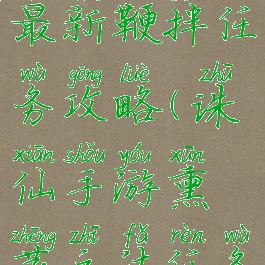 最新鞭拌任
wù gōng lüè zhū
务攻略(诛
xiān shǒu yóu xūn
仙手游熏
zhēng zhī fǎ rèn wù
蒸之法任务